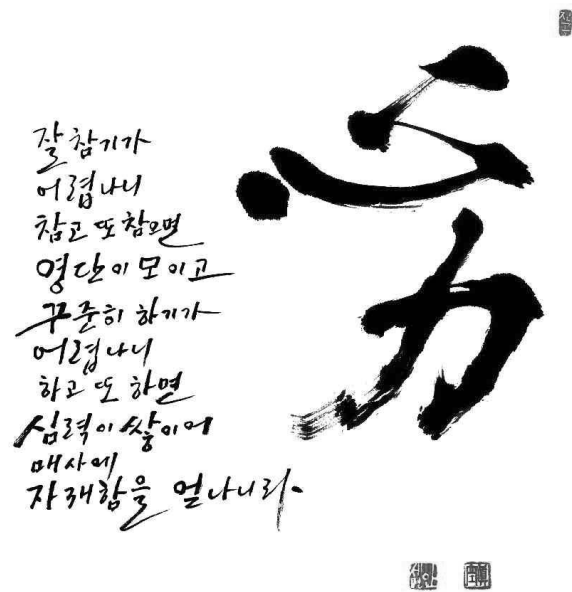 心力
잘 참기가
어렵나니
참고 또 참으면
영단이 모이고
꾸준히 하기가
어렵나니
하고 또 하면
심력이 쌓이어
매사에
자재함을 얻나니라.